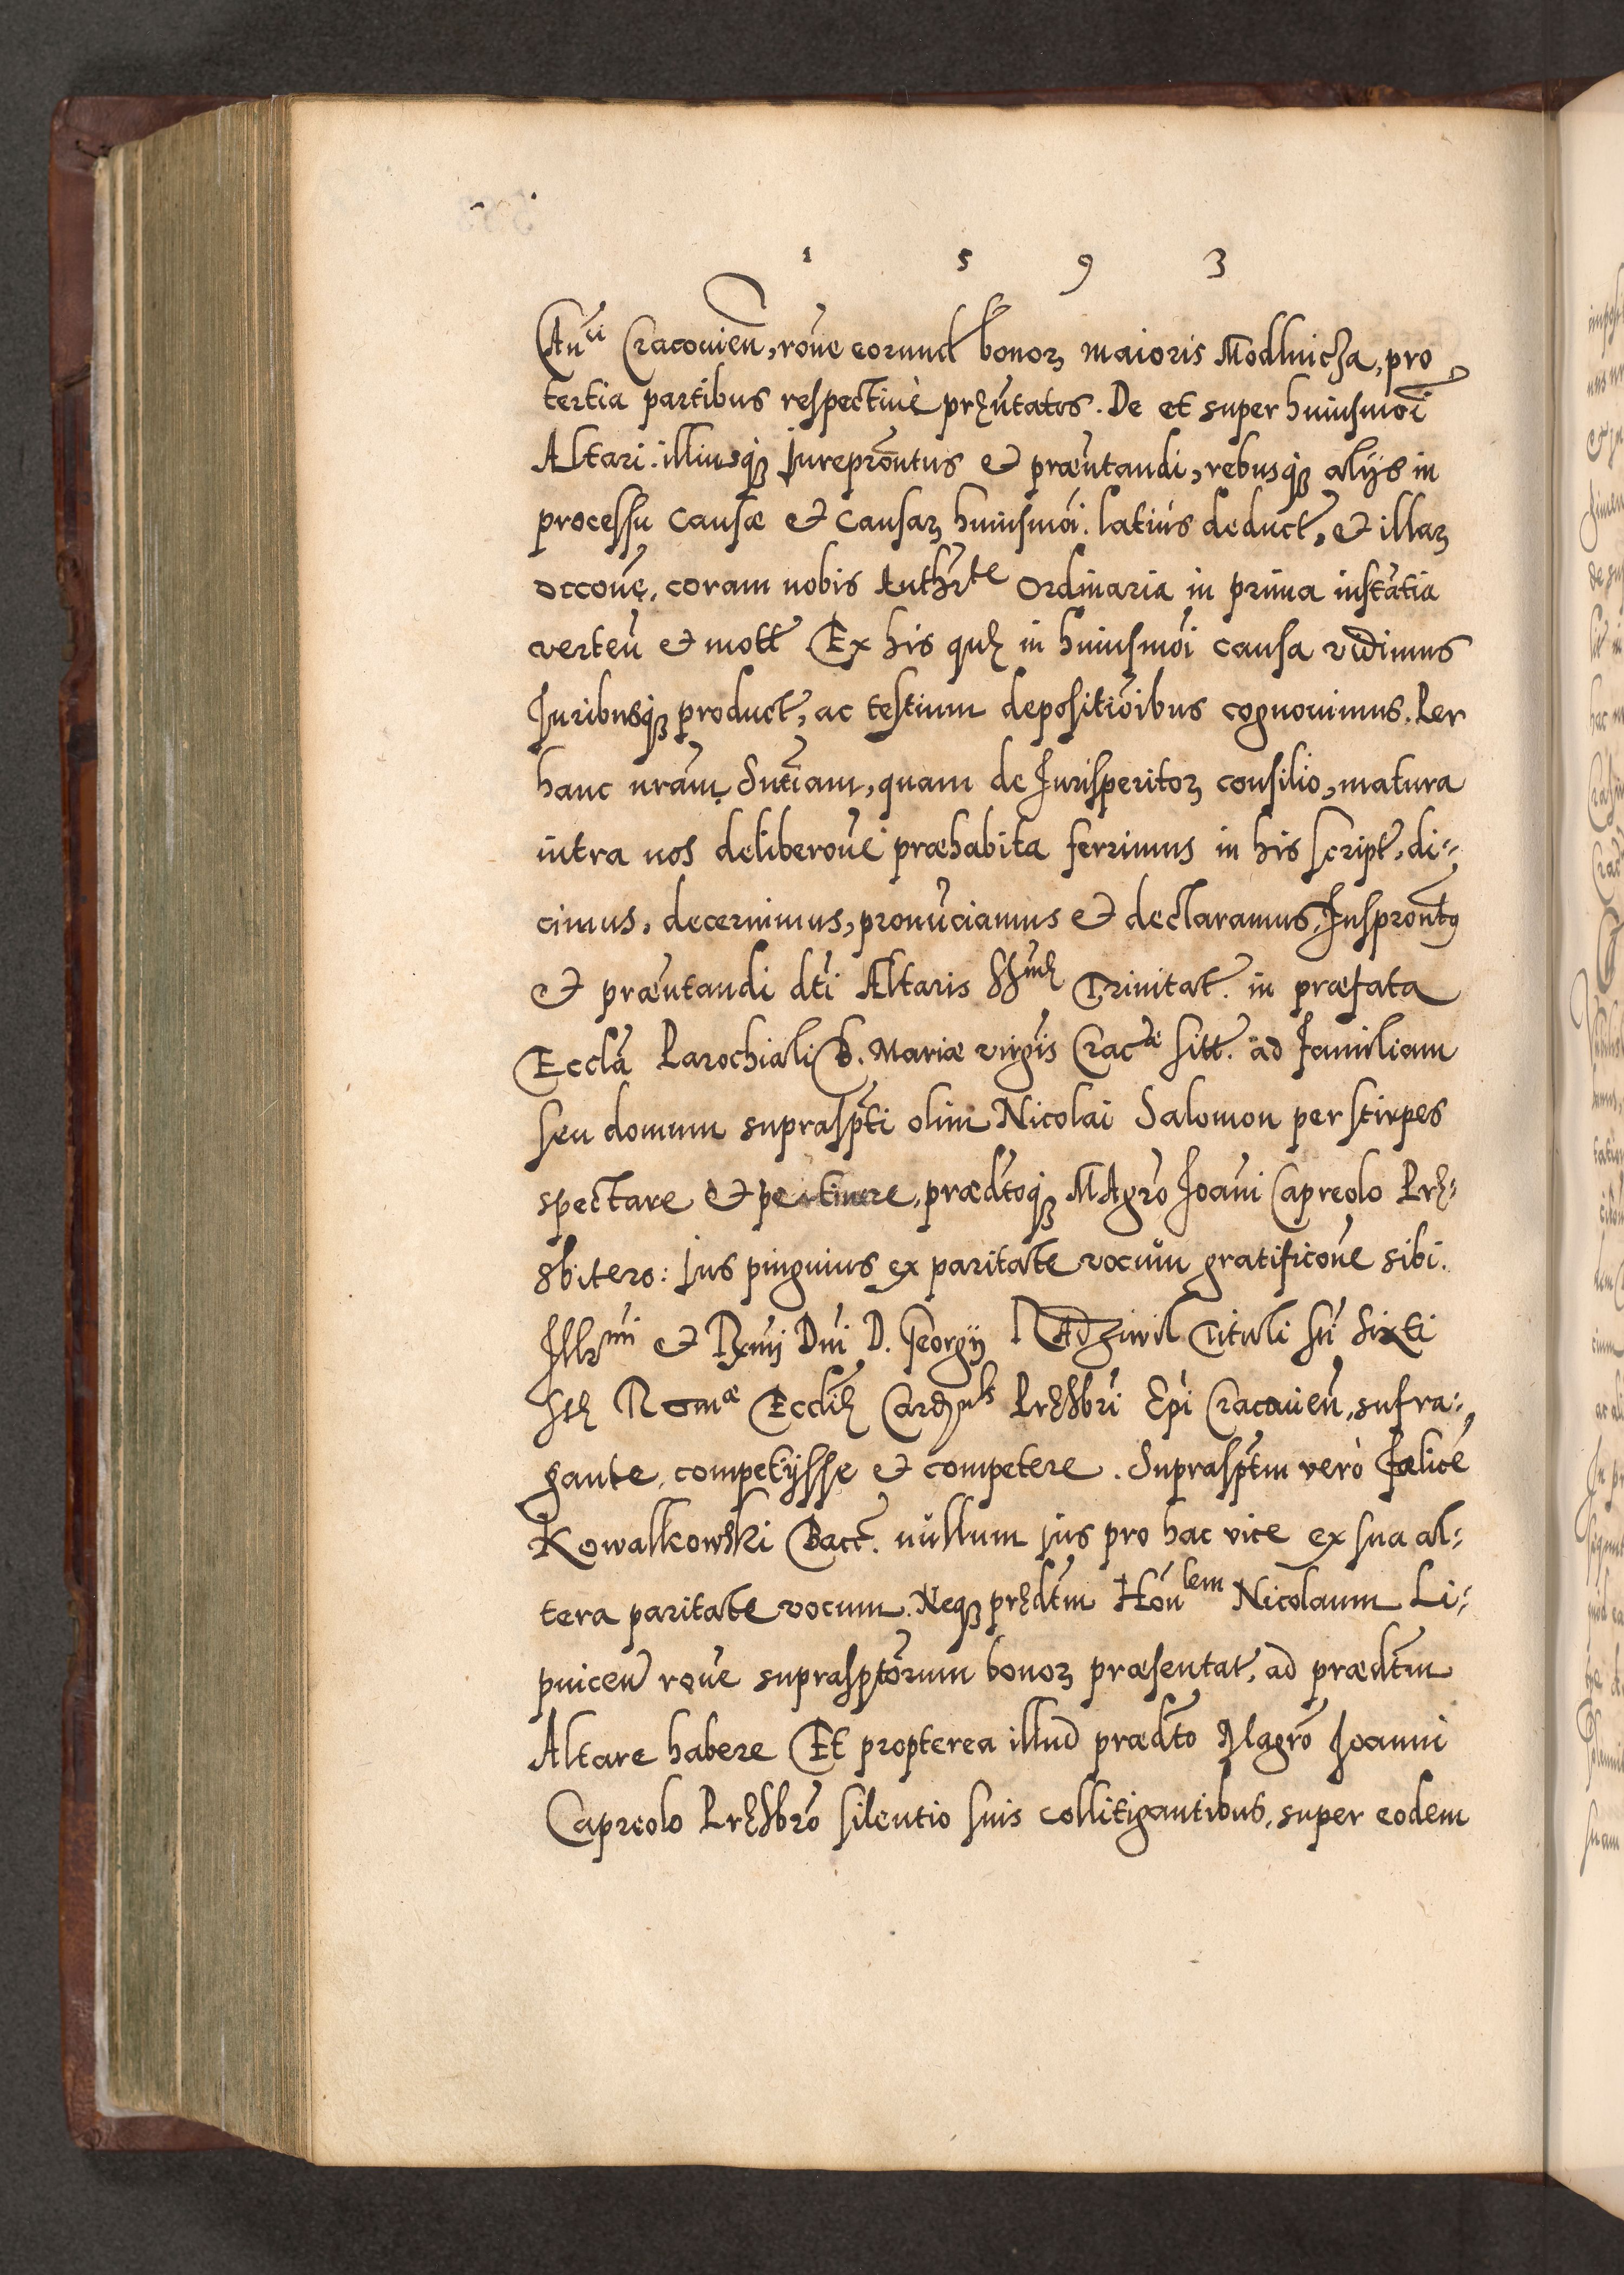 1 5 9 3
Canci Cracouien̄, rōne eorund bonoꝝ maioris Modlnicza, pro
tertia partibus respectiuè pręn̄tatos. De et super huiusmōi
Altari illiusqȝ Iureprōntus et præn̄tandi, rebusqȝ alijs in
processu causæ et causaꝝ huiusmōi latiùs deduct, et illaꝝ
occōne, coram nobis Authrte ordinaria in prima instātia
verteñ et mott Ex his quę in huiusmōi causa vidimus
Iuribusqȝ product, ac testium depositiōibus cognouimus. Per
hanc nr̄am Sn̄tiam, quam de Iurisperitoꝝ consilio, matura
intra nos deliberōne præhabita ferrimus in his script, di-
cimus, decernimus, pronūciamus et declaramus, Iusprōntꝯ
et præn̄tandi dti Altaris SSmę Trinitat. in præfata
Ecclā Parochiali B. Mariæ virgīs Cracæ sitt. ad Familiam
seu domum suprasp̄ti olim Nicolai Salomon per stirpes
spectare et pertinere, prædtoqȝ MAgrō Ioāni Capreolo Prę-
sbitero: Ius pinguius ex paritate vocum gratificōne sibi.
Illrmi et Rmi Dni D. Georgij RAdziwil Tituli Sti Sixti
Stę Romæ Ecclię Cardnls Pręsbri Epi Cracouien̄, sufra-
gante, competijsse et competere. Suprasp̄tm verò Fœlicē
Kowalkowski Bacc. nullum jus pro hac vice ex sua al-
tera paritate vocum. Neqȝ prędtm Honlem Nicolaum Li-
pnicen̄ rōne suprasp̄torum bonoꝝ præsentat, ad prædtm
Altare habere Et propterea illud prædto Magrō Ioanni
Capreolo Pręsbrō silentio suis collitigantibus, super eodem